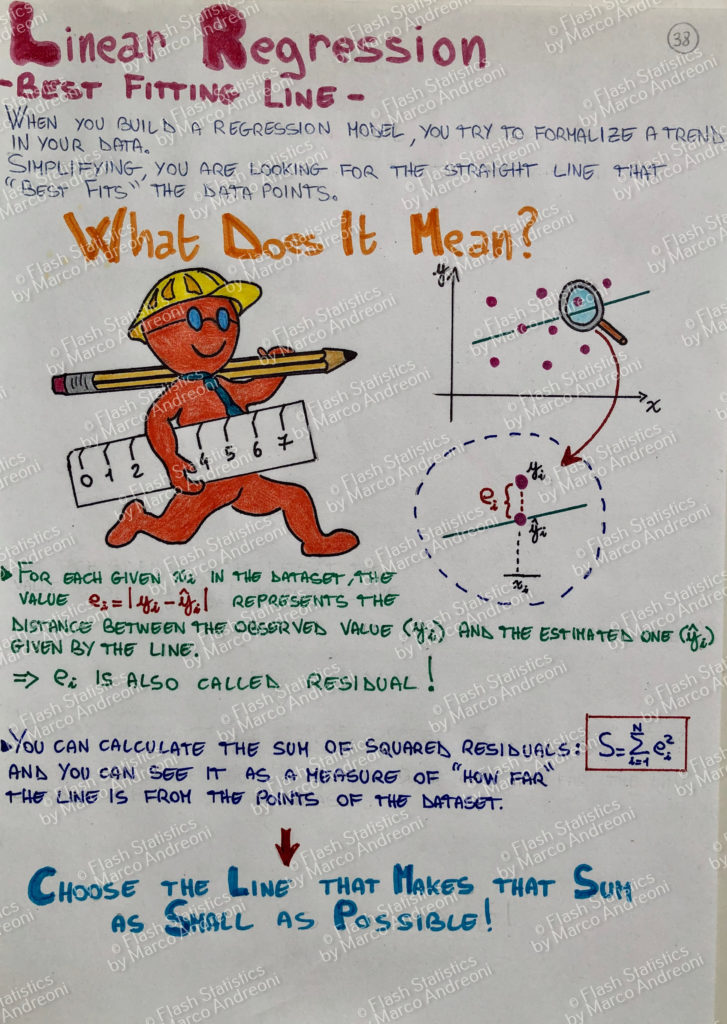 Linear Regression
38
- BEST FITTING LINE -
WHEN YOU BUILD A REGRESSION MODEL, YOU TRY TO FORMALIZE A TREND
IN YOUR DATA.
SIMPLIFYING, YOU ARE LOOKING FOR THE STRAIGHT LINE THAT
"BEST FITS" THE DATA POINTS.
What Does It Mean?
y
x
0 1 2 4 5 6 7
yᵢ
eᵢ {
ŷᵢ
xᵢ
FOR EACH GIVEN xᵢ IN THE DATASET, THE
VALUE eᵢ = |yᵢ - ŷᵢ| REPRESENTS THE
DISTANCE BETWEEN THE OBSERVED VALUE (yᵢ) AND THE ESTIMATED ONE (ŷᵢ)
GIVEN BY THE LINE.
⇒ eᵢ IS ALSO CALLED RESIDUAL!
YOU CAN CALCULATE THE SUM OF SQUARED RESIDUALS: S = Σᵢ₌₁ᴺ eᵢ²
AND YOU CAN SEE IT AS A MEASURE OF "HOW FAR"
THE LINE IS FROM THE POINTS OF THE DATASET.
CHOOSE THE LINE THAT MAKES THAT SUM
AS SMALL AS POSSIBLE!
© Flash Statistics
by Marco Andreoni